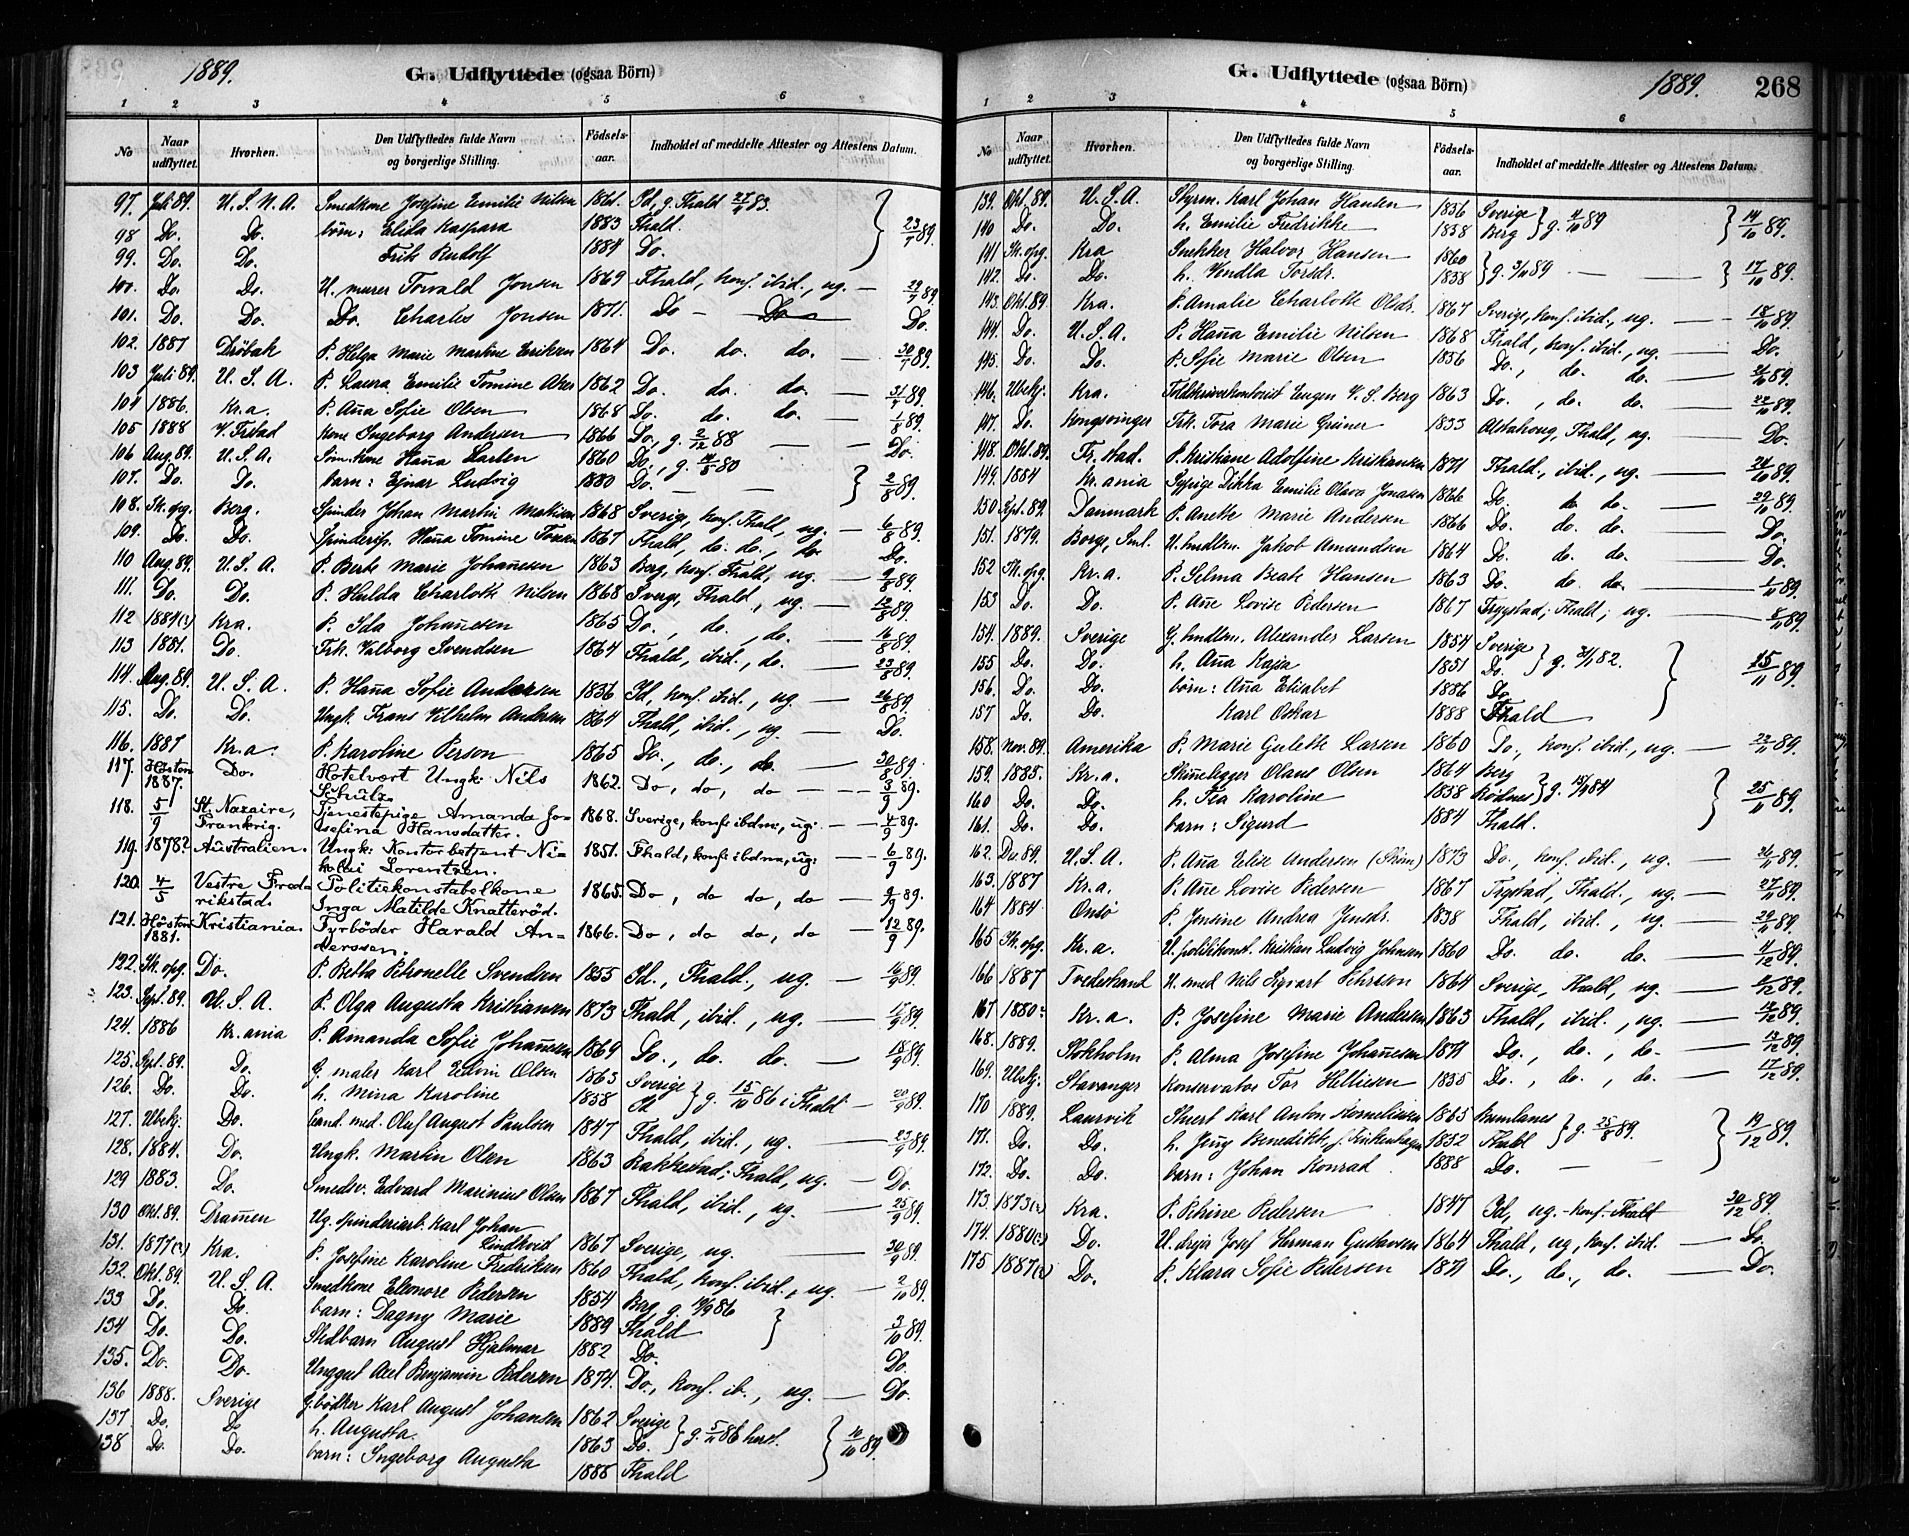 1889.
G. Udflyttede (ogsaa Börn)
1 2 3 4 5 6
No Naar udflyttet. Hvorhen. Den Udflyttedes fulde Navn og borgerlige Stilling. Födsels-aar. Indholdet af meddelte Attester og Attestens Datum.
97. Juli 89. U. S. N. A. Smedkone Josefine Emilie Nilsen 1861. Id, g. Fhald 83.
98 Do. Do. børn: Elida Kaspara 1883 Fhald. 23/7 89.
99. Do. Do. Frik Rudolf 1884 Do.
100. Do. Do. U. murer Torvald Jonsen 1869 Fhald, konf. ibid., ug. — 29/7 89
101. Do. Do. Do. Charles Jonsen 1871. Do — Do — Do.
102. 1887 Drøbak P. Helga Marie Martine Eriksen 1864 Do. do. do. — 30/7 89.
103 Juli 89. U. S. A. P. Laura Emilie Tomine Aker 1862 Do. do. do. — 31/7 89.
104 1886. Kr.a. P. Aña Sofie Olsen 1868 Do. do. do. — 1/8 89.
105 1888 V. Frstad Kone Ingeborg Andersen 1866 Do., g. 2/12 88 — — Do.
106 Aug. 89. U. S. A. Søm. kone Haña Larsen 1860 Do., g. 80
107. Do. Do. barn: Ejnar Ludvig 1880 Do. — — 2/8 89.
108. Sk. opg. Berg. Spinder Johan Martin Mathisen 1868 Sverige, konf. Fhald, ug. — 6/8 89.
109. Do. Do. Spindersp. Haña Tomine 1867 Fhald, do. do., do. Do.
110 Aug. 89. U. S. A. P. Berte Marie Johañesen 1863 Berg, konf. Fhald, ug. — 9/8 89.
111. Do. Do. P. Hulda Charlotte Nilsen 1868 Sverg., Fhald, ug. — 12/8 89.
112 1884(?) Kra. P. Ida Johañesen 1865 Do., do., do. — 16/8 89.
113 1881. Do. Frk. Valborg Svendsen 1864 Fhald, ibid., do. — 23/8 89.
114. Aug. 89. U. S. A. P. Haña Sofie Andersen 1836 Id, konf. ibid., ug — 26/8 89.
115. Do. Do. Ungk. Frans Vilhelm Andersen 1864 Fhald, ibid., ug — Do.
116. 1887 Kr.a. P. Karoline Person 1865 Do., do., do. — 30/8 89.
117. Høsten 1887. Do. Hotelvært Ungk. Nils Schulz. 1862. Do, do, do — 3/9 89.
118. 5/9 St. Nazaire, Frankrig. Tjenestepige Amanda Josefina Hansdatter. 1868. Sverige, konf: ibdm:, ug: — 4/9 89.
119. 1878? Australien. Ungk: Kontorbetjent Nikolai Lorentzen. 1851. Fhald, konf: ibdm, ug: — 6/9 89.
120. 4/5 Vestre Fredrikstad. Politiekonstabelkone Inga Matilde Knatterød. 1865. Do, do do, do — 9/9 89.
121. Høsten 1881. Kristiania. Fyrbøder Harald Anderssen. 1866. Do, do do, do — 12/9 89.
122. Sk. opg. Do. P. Betta Petronelle Svendsen 1855 Id., Fhald., ug. — 16/9 89.
123. Sept. 89. U. S. A. P. Olga Augusta Kristiansen 1873 Fhald, ibid., ug. — 17/9 89.
124. 1886 Kr. ania P. Amanda Sofie Johañesen 1869 Do., do. do. — 18/9 89.
125. Sept. 89. Do. G. maler Karl Edvin Olsen 1863 Sverige
126. Do. Do. h. Mina Karoline 1858 g. 15/10 86 i Fhald — 20/9 89.
127. Ubekj. Do. Cand. med. Oluf August Paulsen 1847 Fhald, ibid., ug. — 23/9 89.
128. 1884. Do. Ungk. Martin Olsen 1863 Rakkestad; Fhald, ug. — Do.
129 1883. Do. Smedsv. Edvard Marinius Olsen 1867 Fhald, ibid., ug. — 25/9 89.
130 Okt. 89. Dramen Ug. spinderiarb. Karl Johan Lindkvist 1867 Sverige, ug. — 30/9 89.
131. 1877(?) Kra. P. Josefine Karoline Fredriksen 1860 Fhald, konf. ibid., ug. — 2/10 89.
132. Okt. 89. U. S. A. Smedkone Eleonore Pedersen 1854 Berg g. 86
133 Do. Do. barn: Dagny Marie 1889 Fhald 3/10 89.
134 Do. Do. Stedbarn August Hjalmar 1882 Do. Do.
135. Do. Do. Unggut Axel Benjamin Pedersen 1874. Do., konf. ib., ug. — Do.
136 1888. Sverige G. bødker Karl August Johansen 1862 Sverige
137. Do. Do. h. Augusta 1863 Do. g. 5/11 86 herst. 10/10 89.
138 Do. Do. barn: Ingeborg Augusta 1888 Fhald
G. Udflyttede (ogsaa Börn)
1889.
268
1 2 3 4 5 6
No Naar udflyttet. Hvorhen. Den Udflyttedes fulde Navn og borgerlige Stilling. Födsels-aar. Indholdet af meddelte Attester og Attestens Datum.
139. Okt. 89. U. S. A. Styrm. Karl Johan Hansen 1856 Sverige
140 Do. Do. h. Emilie Fredrikke 1858 Berg g. 4/10 89 14/10 89.
141 Sk. opg. Kra Snekker Halvor Hansen 1860
142. Do. Do. h. Vendla Torsdr. 1858 g. 89 — — 17/10 89.
143. Okt. 89. Kra. P. Amalie Charlotte Olsdr. 1867 Sverige, konf. ibid., ug. — 18/10 89.
144. Do. U. S. A. P. Haña Emilie Nilsen 1868 Fhald, konf. ibid., ug. — Do.
145. Do. Do. P. Sofie Marie Olsen 1856 Do., do. do. — 21/10 89.
146. Ubekj. Kra. Toldskriverkontorist Eugen V. S. Berg 1863 Do., do. do. — 22/10 89.
147. Do. Kongsvinger Frk. Tora Marie Grüner 1833 Alstahoug, Fhald, ug. — Do.
148. Okt. 89. Fr. stad. P. Kristiane Adolfine Kristiansen 1871 Fhald, ibid., ug. — 24/10 89.
149. 1884 Kr. ania Sypige Dikka Emilie Olava Jonasen 1866 Do. do do. — 29/10 89.
150 Sept. 89. Danmark P. Anette Marie Andersen 1866 Do. do. do. — Do.
151. 1879. Borge, Sml. U. hmdlsm. Jakob Amundsen 1864 Do. do. do. — Do.
152 Sk. opg. Kr.a. P. Selma Beate Hansen 1863 Do. do. do. — 1/11 89.
153 Do. Do. P. Añe Lovise Pedersen 1867 Trygstad; Fhald; ug. — 8/11 89.
154. 1889. Sverige G. hmdlsm. Alexander Larsen 1854 Sverige
155 Do. Do. h. Aña Kajsa 1851 Do. g. 82. 15/11 89.
156. Do. Do. børn: Aña Elisabet 1886 Do.
157 Do. Do. Karl Oskar 1888 Fhald
158. Nov. 89. Amerika P. Marie Gulette Larsen 1860 Do., konf. ibid., ug. — 22/11 89.
159. 1885. Kr.a. Skinelegger Olaus Olsen 1864 Berg
160 Do. Do. h. Ita Karoline 1858 Rødnes g. 84 25/11 89.
161. Do. Do. barn: Sigurd 1884 Fhald.
162. Do. 89. U. S. A. P. Aña Elise Andersen 1873 Do., konf. ibid., ug. — 26/11 89.
163. 1887 Kr.a. P. Añe Lovise Pedersen 1867 Trygstad, Fhald, ug. — 27/11 89.
164 1884 Onsø P. Jensine Andrea Jensdr. 1838 Fhald, ibid., ug. — 29/11 89.
165 Sk. opg. Kr.a. U. politikonst. Kristian Ludvig Johnsen 1860 Do. do. do. — 4/12 89.
166 1887 Tvedestrand U. smed Nils Sigvart Pehrsson 1864 Sverige, Fhald, ug. — 6/12 89.
167 1880? Kr.a. P. Josefine Marie Andersen 1863 Fhald, ibid., ug. — 12/12 89.
168. 1889. Stokholm P. Alma Josefine Johañesen 1871 Do., do., do. — 13/12 89.
169. Ubekj. Stavanger Konservator Tor Helliesen 1855 Do., do., do. — 17/12 89.
170 1889. Laurvik Skuest Karl Anton Kornelissen 1865 Brunlanes
171. Do. Do. h. Jeñy Benedikte, f. Finkenhagen 1852 Fhald g. 25/8 89. 19/12 89.
172. Do. Do. barn: Johan Konrad 1888 Do. — —
173. 1873(?) Kra. P. Petrine Pedersen 1847 Id, ug. konf. Fhald 30/12 89.
174. 1880(?) Do. U. drejer Josef Herman Gustavsen 1864 Fhald, ug, konf. ibid. — Do.
175 1887(?) Do. P. Klara Sofie Pedersen 1871 Do., do., do. — Do.